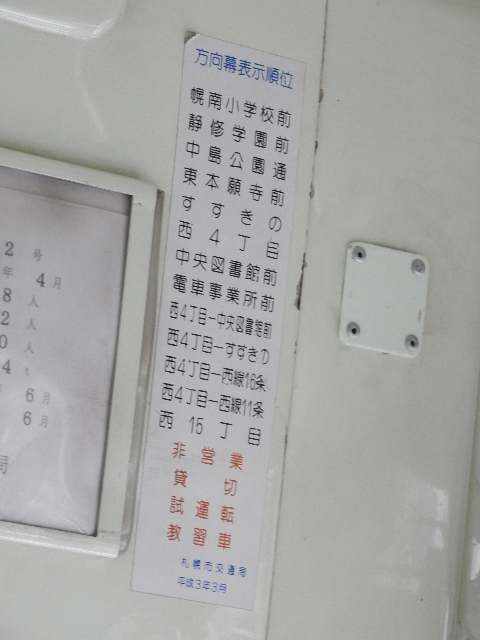 方向幕表示順位
幌南小学校前
静修学園前
中島公園通
東本願寺前
すすきの
西4丁目
中央図書館前
電車事業所前
西4丁目－中央図書館前
西4丁目－すすきの
西4丁目－西線16条
西4丁目－西線11条
西15丁目
非営業
貸切
試運転
教習車
札幌市交通局
平成3年3月
2号
年4月
8人
2人
0人
4t
年6月
6月
局